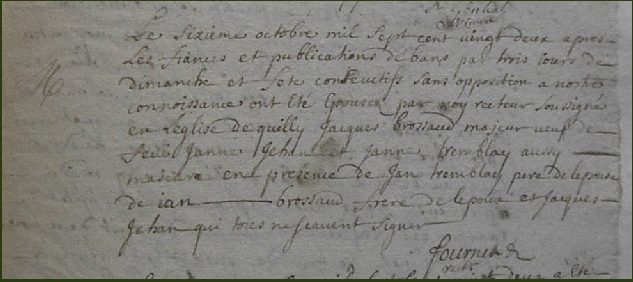 Le sixieme octobre mil sept cent vingt deux apres
Les fiances et publications de bans par trois iours de
dimanche et fete consecutifs sans opposition a notre
connoissance ont Ete Epousez par moy recteur soussigne
en Leglise de quilly Jacques Brossaud majeur veuf de
feüe Janne Jehan et Janne tremblay aussy
majeure en presence de Jan tremblay pere de lepouse
de ian brossaud frere de lepoux et Jacques
Jehan qui tous ne scavent signer
fournier
rectr